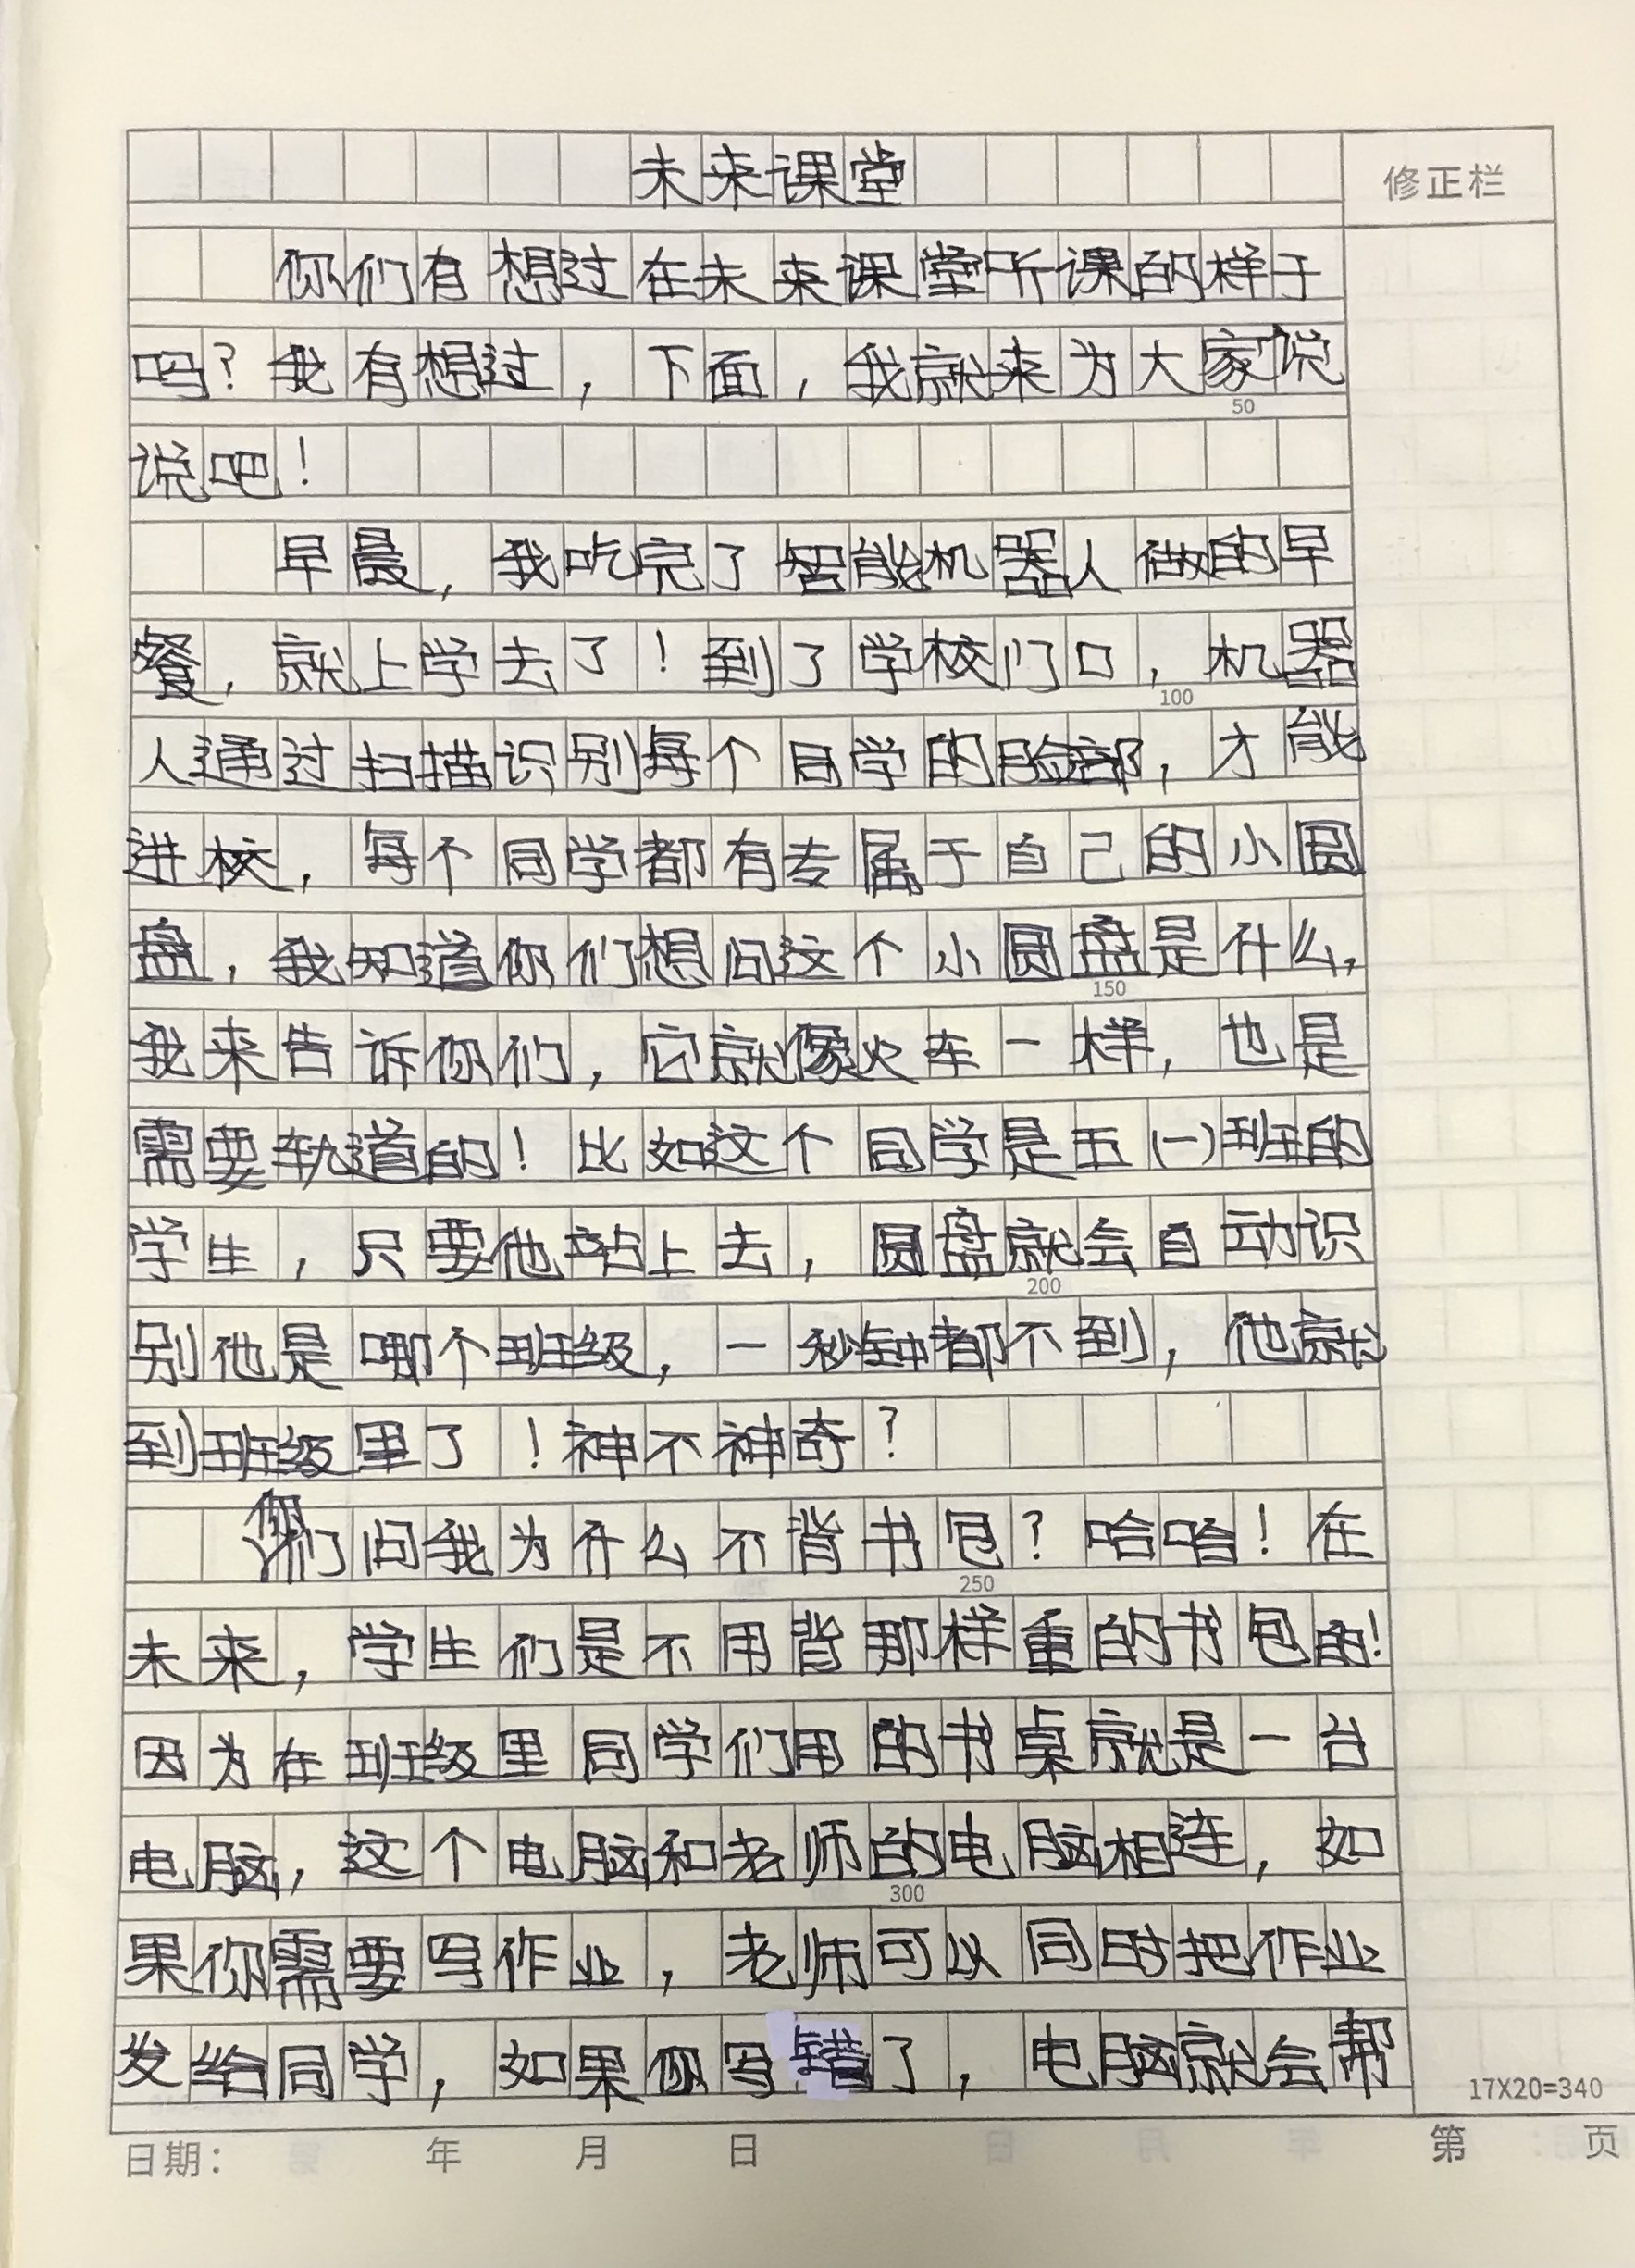 未来课堂
修正栏
你们有想过在未来课堂听课的样子
吗？我有想过，下面，我就来为大家说
50
说吧！
早晨，我吃完了智能机器人做的早
餐，就上学去了！到了学校门口，机器
100
人通过扫描识别每个同学的脸部，才能
进校，每个同学都有专属于自己的小圆
盘，我知道你们想问这个小圆盘是什么，
150
我来告诉你们，它就像火车一样，也是
需要轨道的！比如这个同学是五(一)班的
学生，只要他站上去，圆盘就会自动识
200
别他是哪个班级，一秒钟都不到，他就
到班级里了！神不神奇？
你们问我为什么不背书包？哈哈！在
250
未来，学生们是不用背那样重的书包的！
因为在班级里同学们用的书桌就是一台
电脑，这个电脑和老师的电脑相连，如
300
果你需要写作业，老师可以同时把作业
发给同学，如果你写错了，电脑就会帮
17X20=340
日期： 年 月 日 第 页